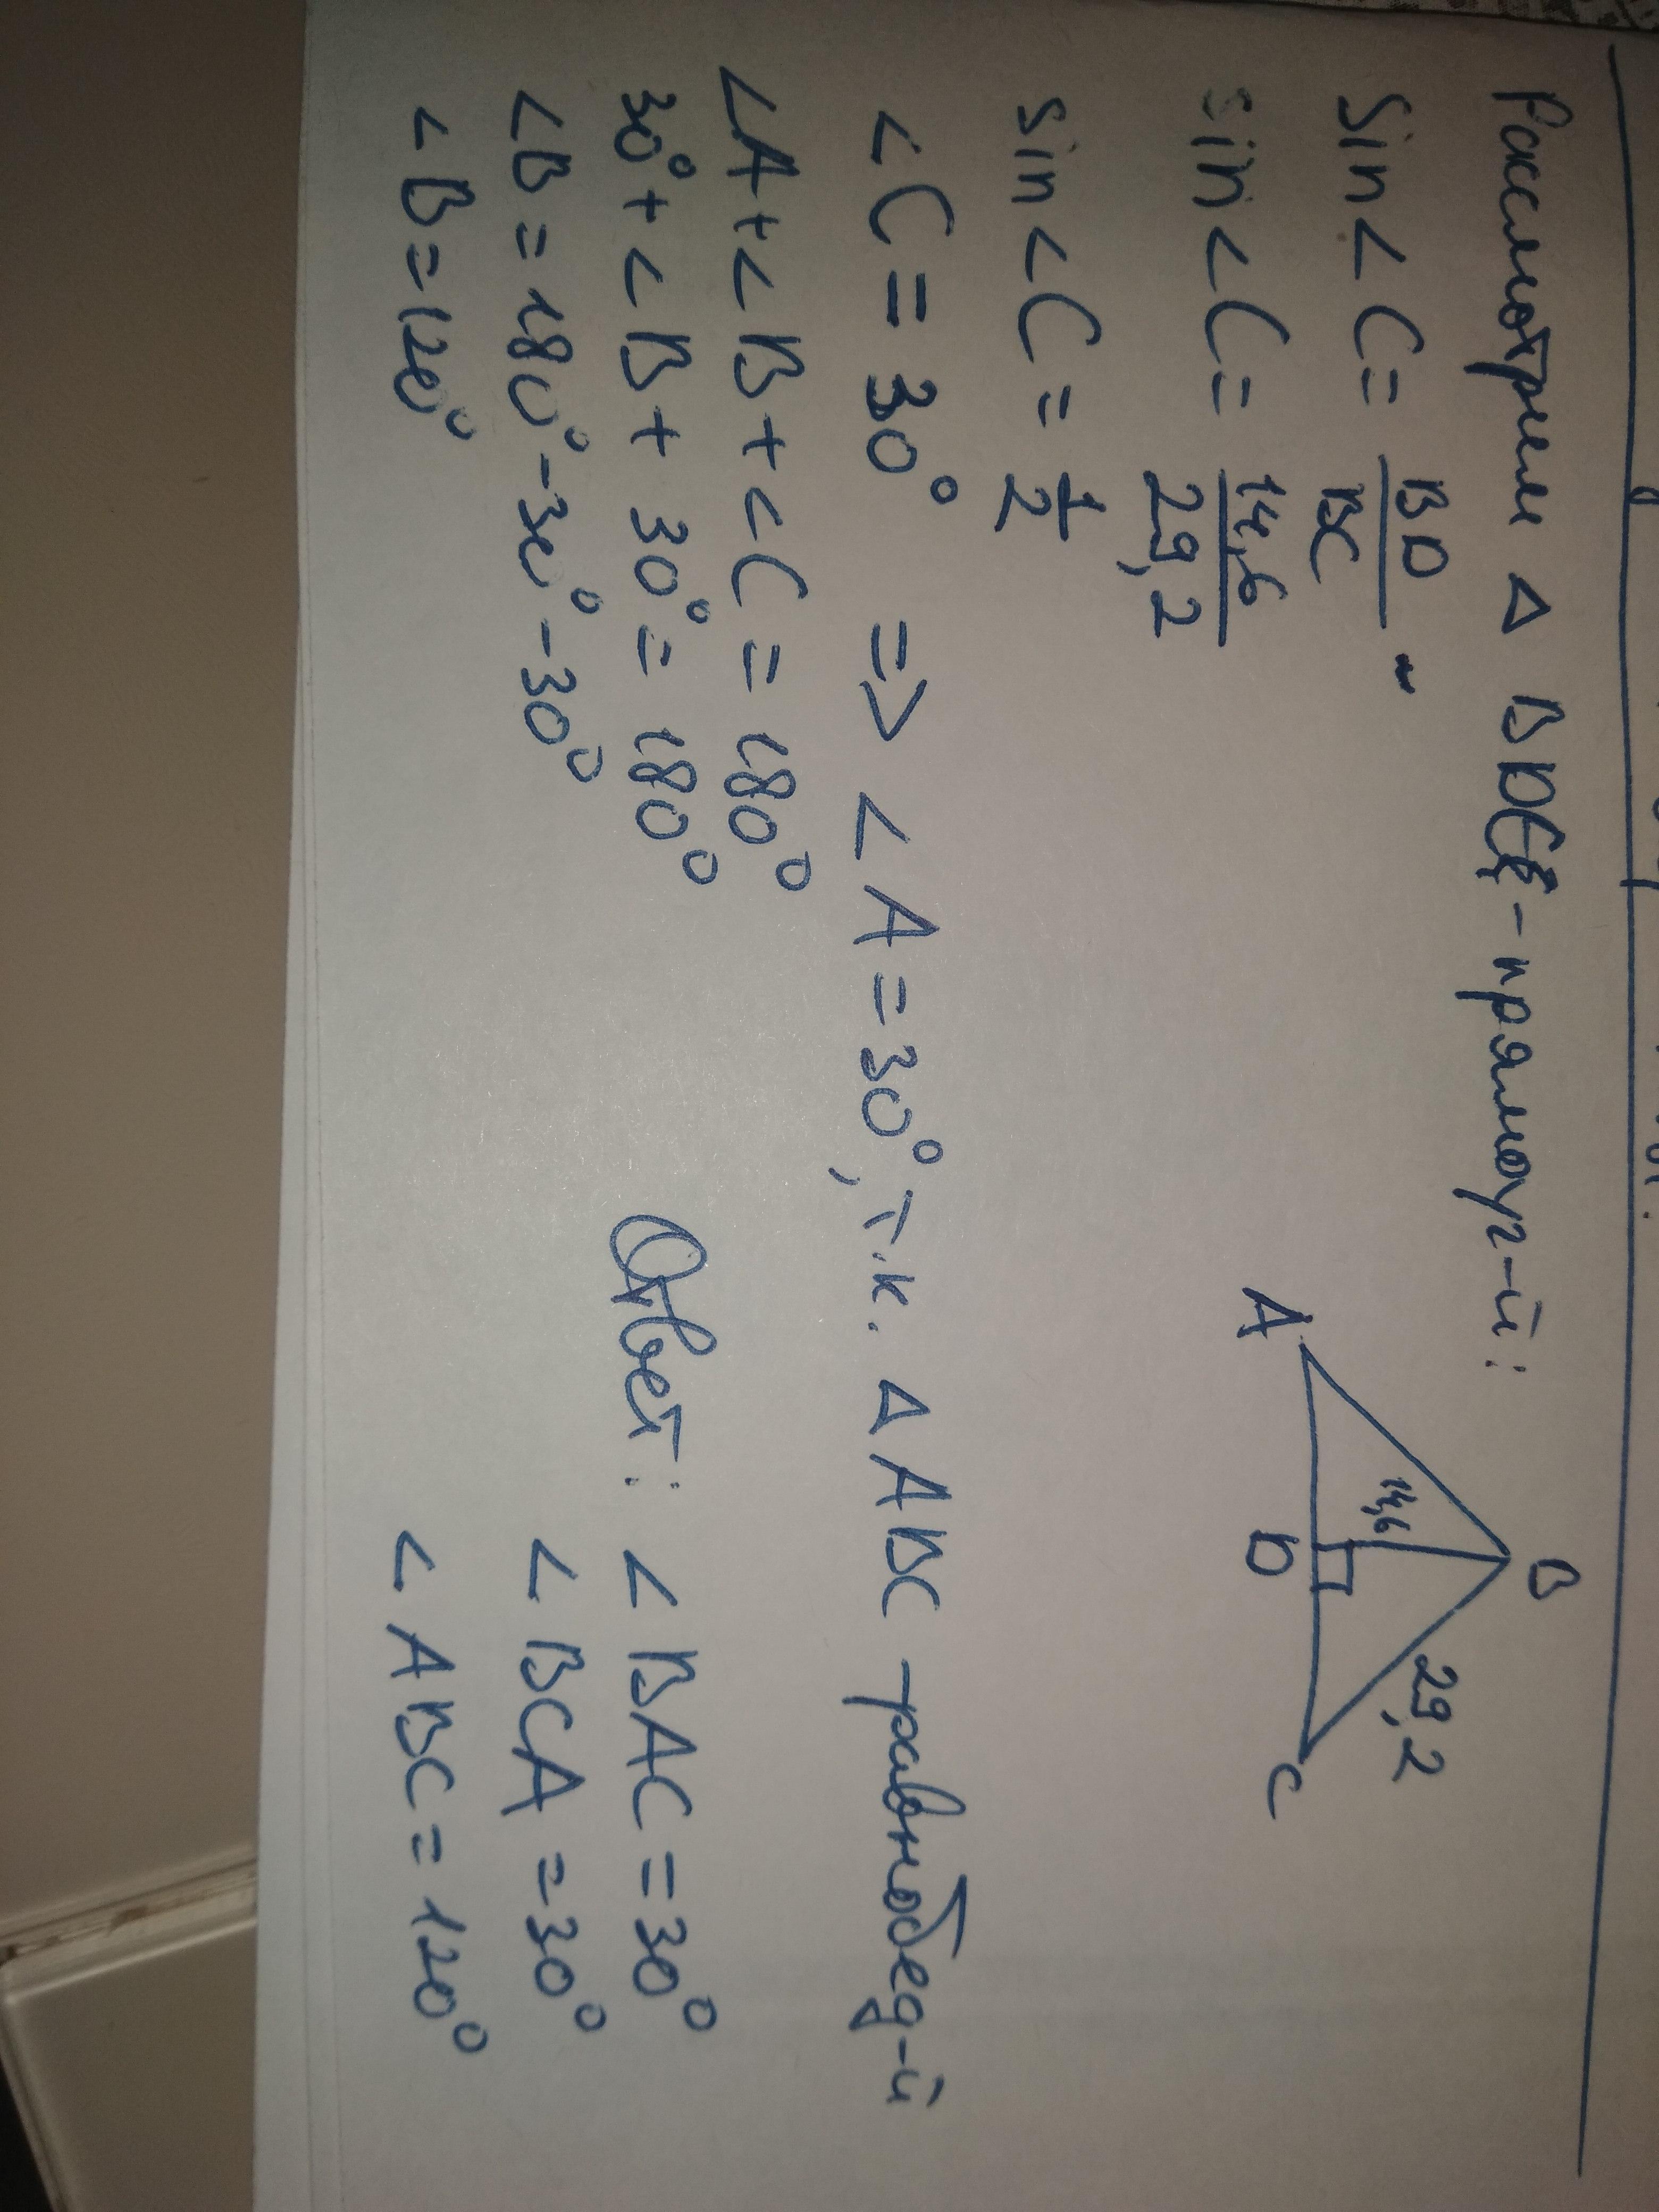 Рассмотрим Δ BDC - прямоуг-й:
Sin∠C = BD/BC
sin∠C = 14,6/29,2
sin∠C = 1/2
∠C = 30° => ∠A = 30°, т.к. Δ ABC - равнобед-й
∠A+∠B+∠C = 180°
30°+∠B+30° = 180°
∠B = 180°-30°-30°
∠B = 120°
B
14,6
29,2
A
D
C
Ответ: ∠BAC = 30°
∠BCA = 30°
∠ABC = 120°